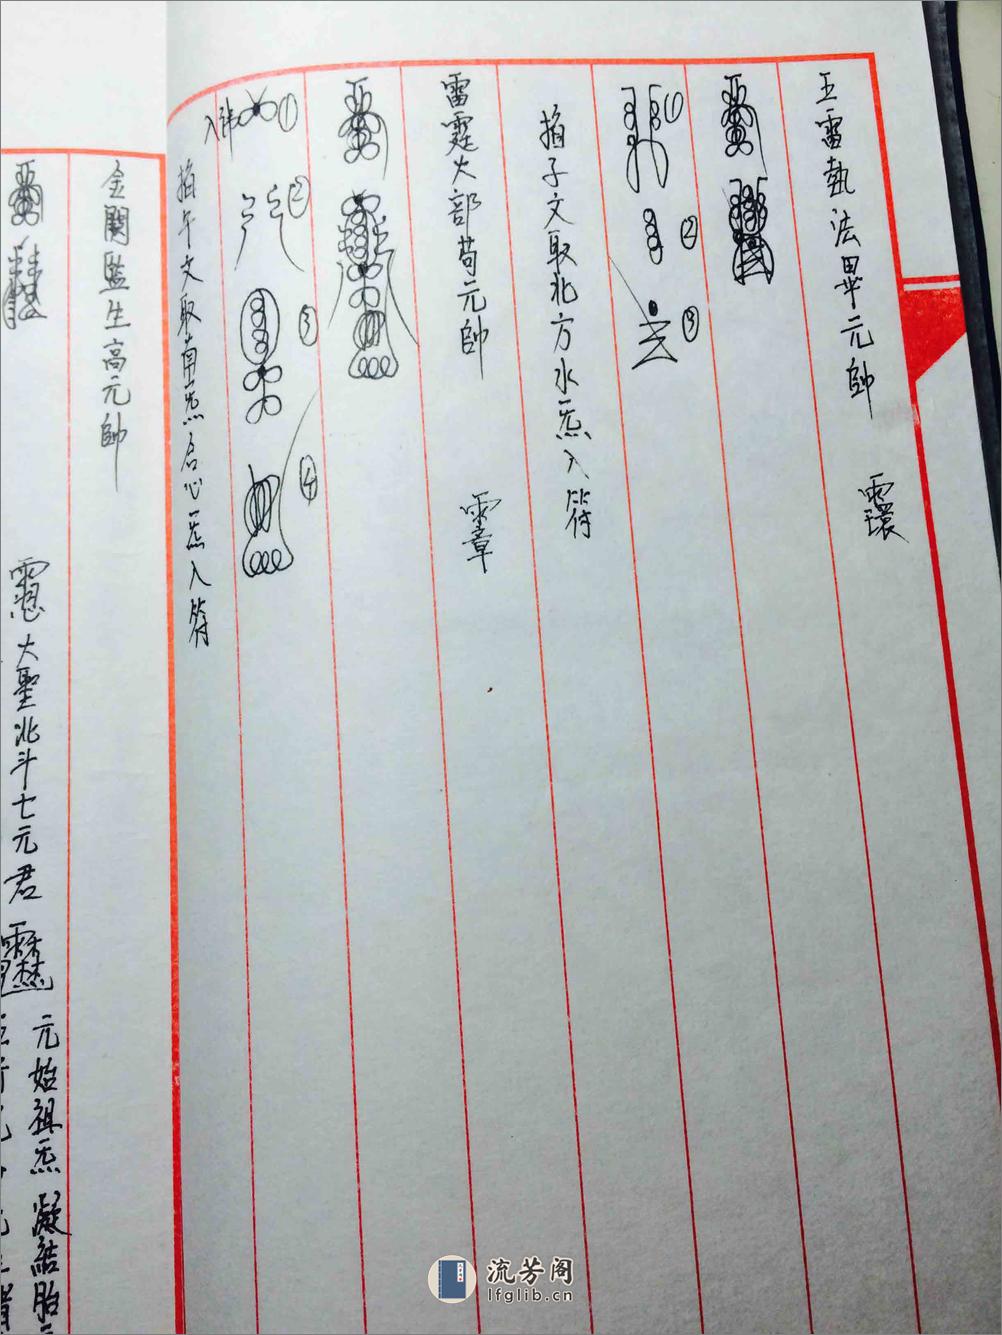 五雷執法畢元帥
①
②
③
掐子文取北方水炁入符
雷霆火部苟元帥
①
②
③
④
入諱
掐午文取南炁召心炁入符
金闕監生高元帥
大聖北斗七元君
元始祖炁 凝結胎
流芳阁
lfglib.cn